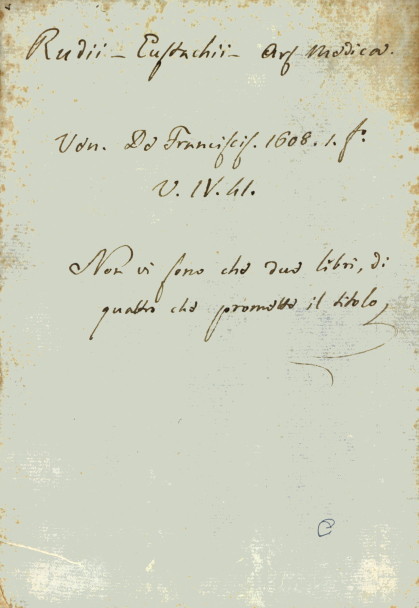 Rudii - Eustachii - Ars Medica.
Ven. De Franciscis. 1608. 1. fo.
V. IV. 41.
Non vi sono che due libri, di
quattro che promette il titolo,
C